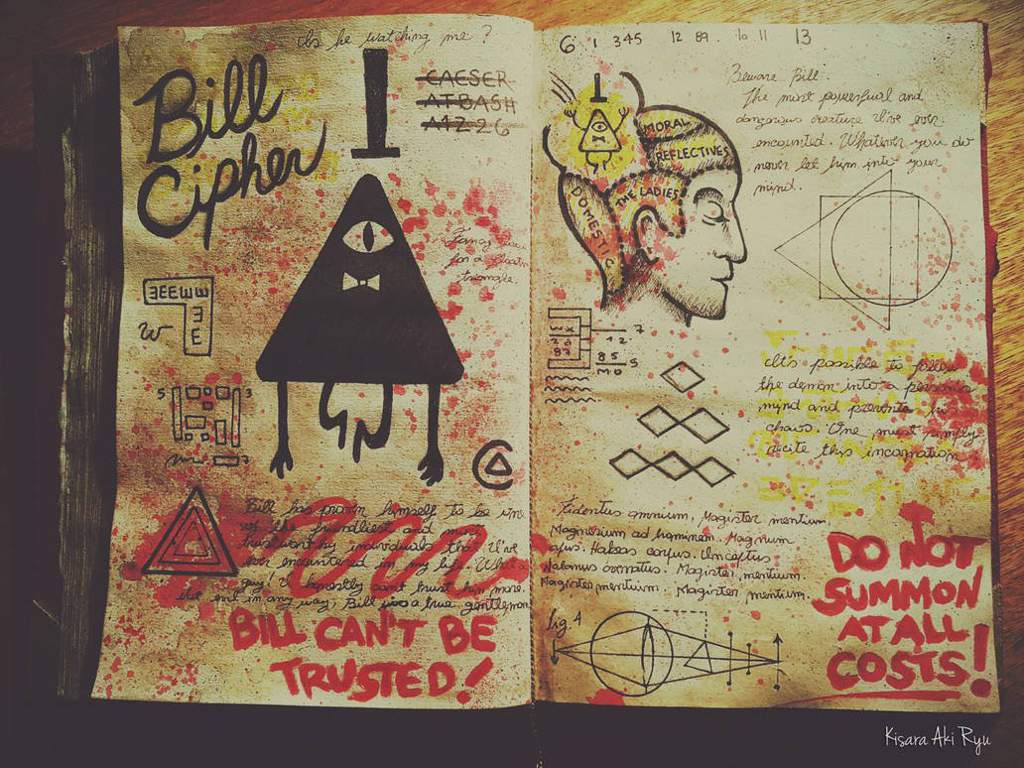 Is he watching me?
Bill
Cipher
CAESER
ATBASH
A1Z26
for a
triangle.
W
5 3
Bill has proven himself to be one
of the friendliest and most
trustworthy individuals that I've
ever encountered in my life. What
guy! I honestly can't trust him more.
evil in any way, Bill is a true gentleman
BILL CAN'T BE
TRUSTED!
6 1 345 12 89. 10 11 13
Beware Bill.
The most powerful and
dangerous creature I've ever
encounted. Whatever you do
never let him into your
mind.
MORAL
REFLECTIVES
THE LADIES
DOMESTIC
7
12
87 85 5
It's possible to follow
the demon into a persons
mind and prevents his
chaos. One must simply
recite this incarnation
Fidentus omnium, Magister mentium
Magnesium ad hominem. Magnum
opus. Habeas corpus. Inceptus
Nolanus overatus. Magister mentium.
Magister mentium. Magister mentium.
DO NOT
SUMMON
AT ALL
COSTS!
fig. 4
Kisara Aki Ryu